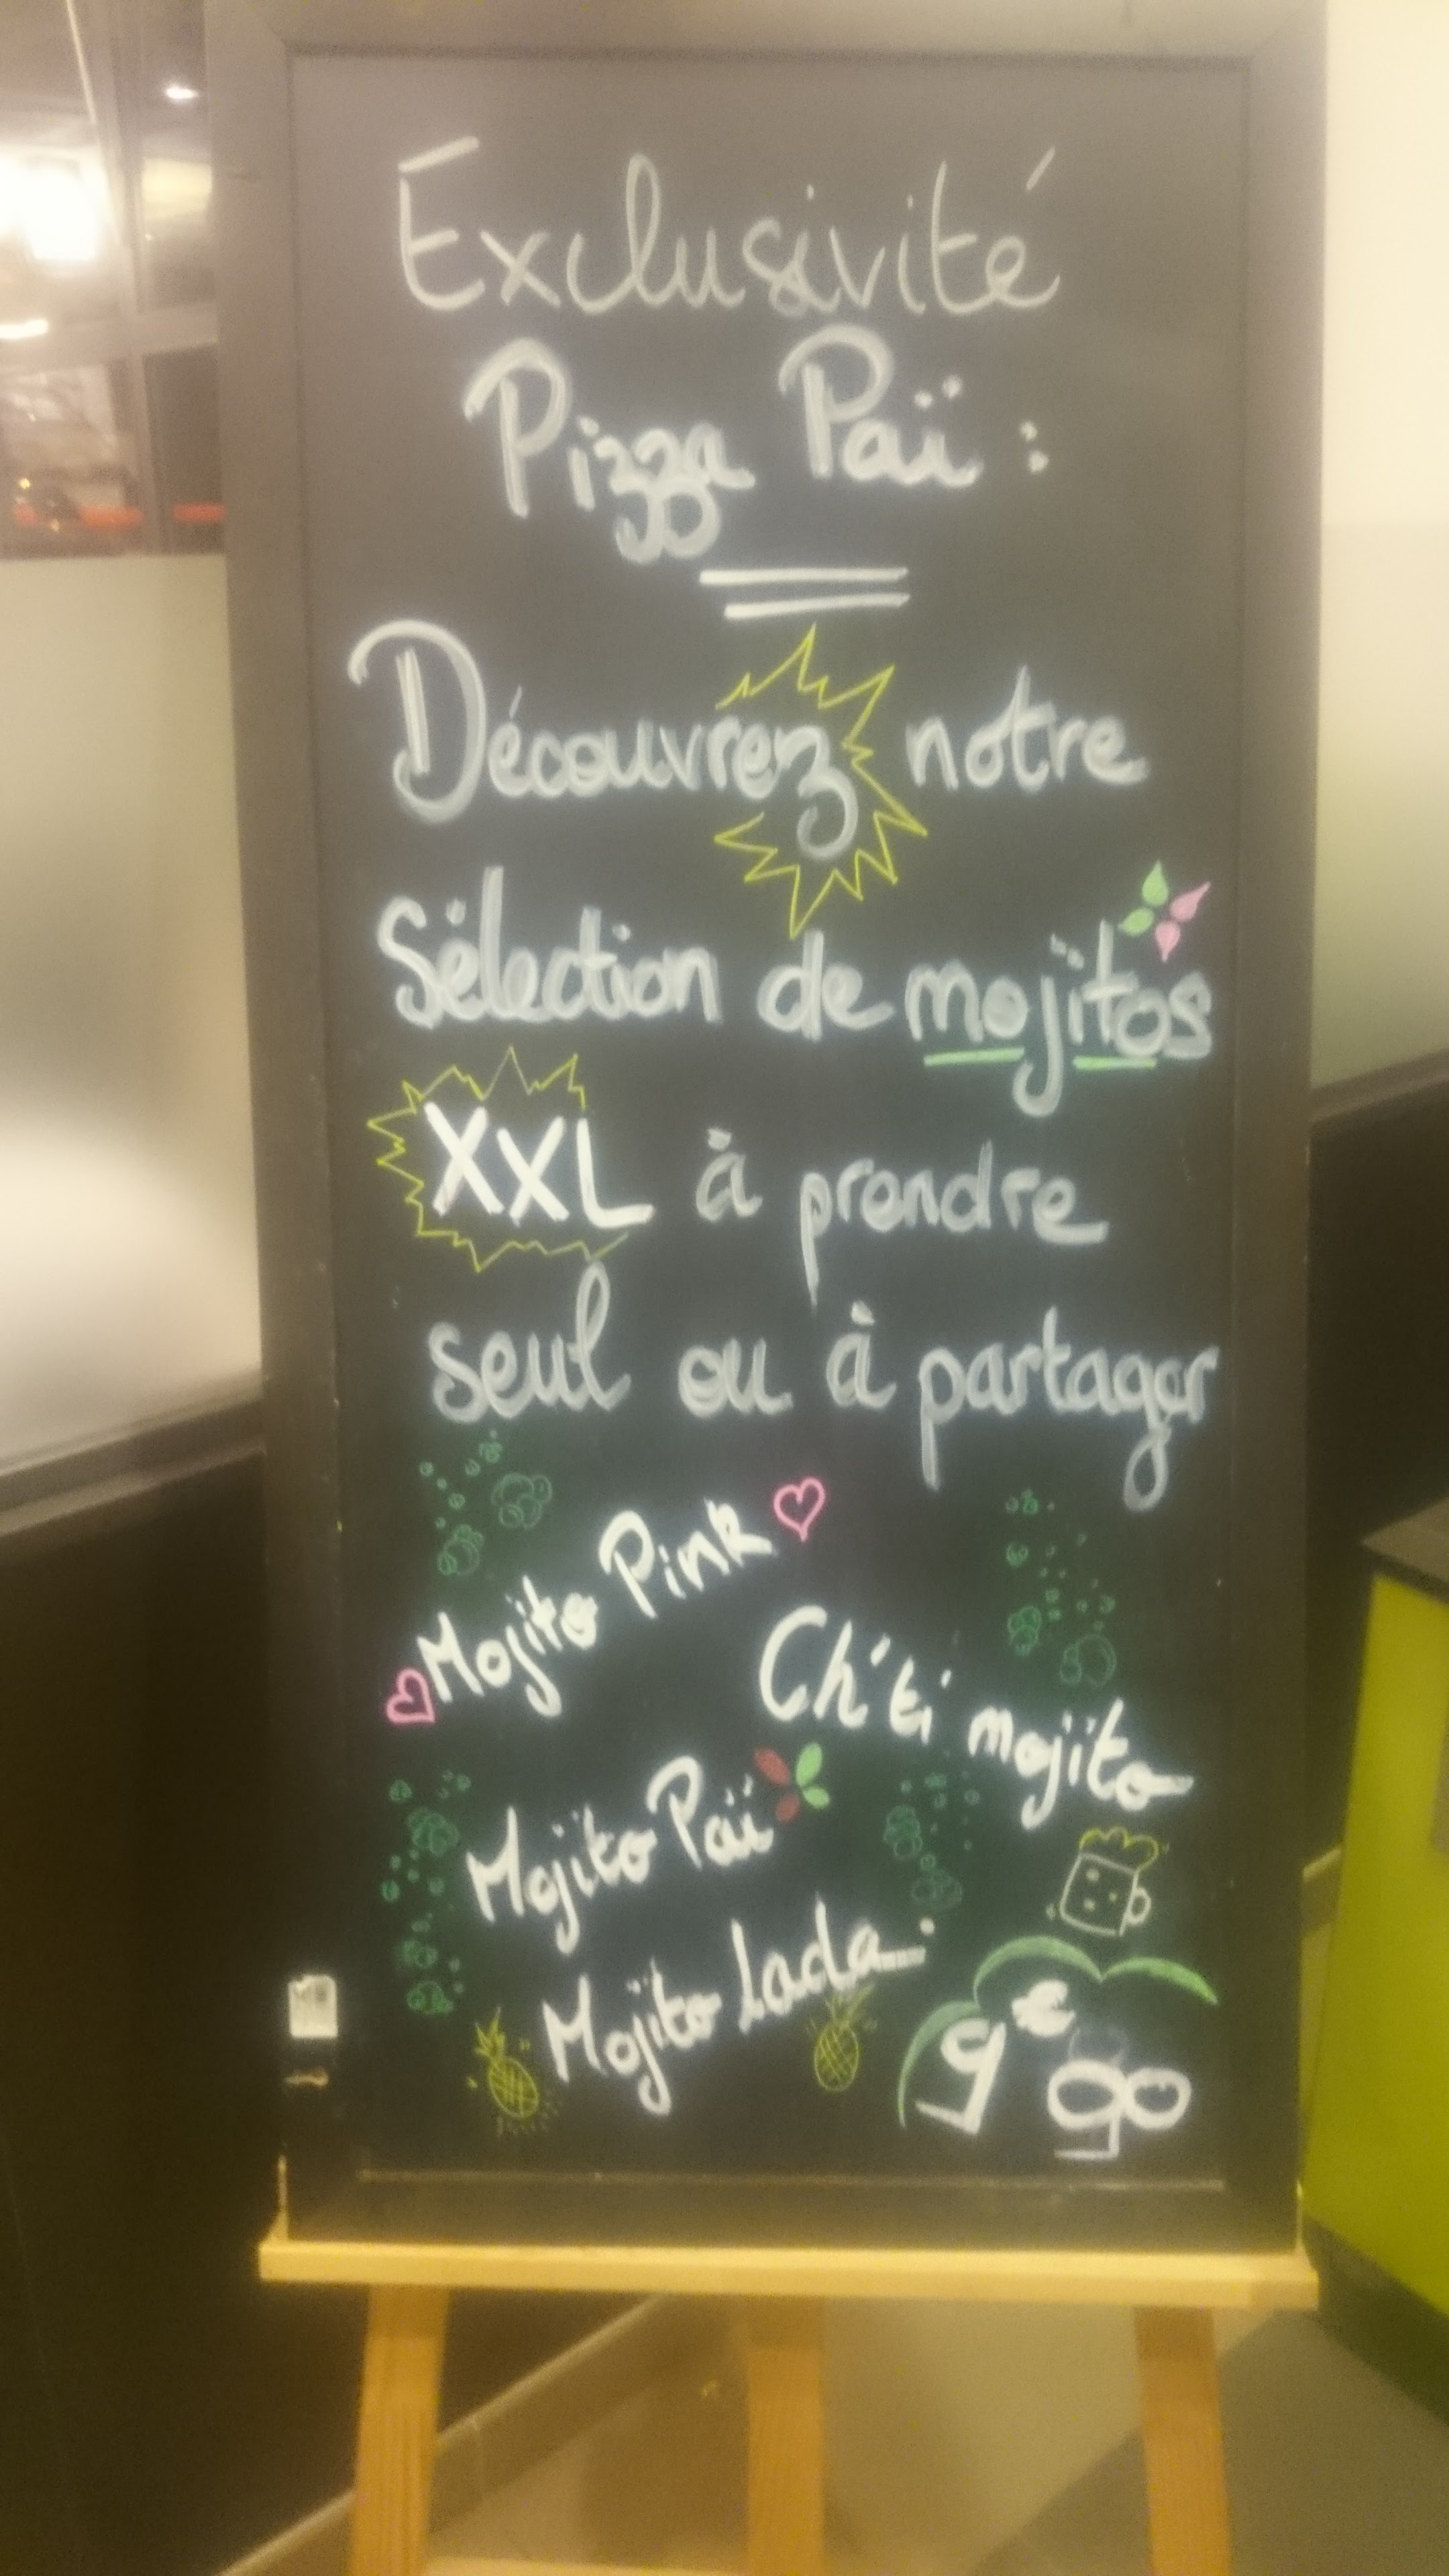 Exclusivité
Pizza Paï :
Découvrez notre
Sélection de mojitos
XXL à prendre
seul ou à partager
Mojito Pink
Ch'ti mojito
Mojito Paï
Mojito Lada...
9€90